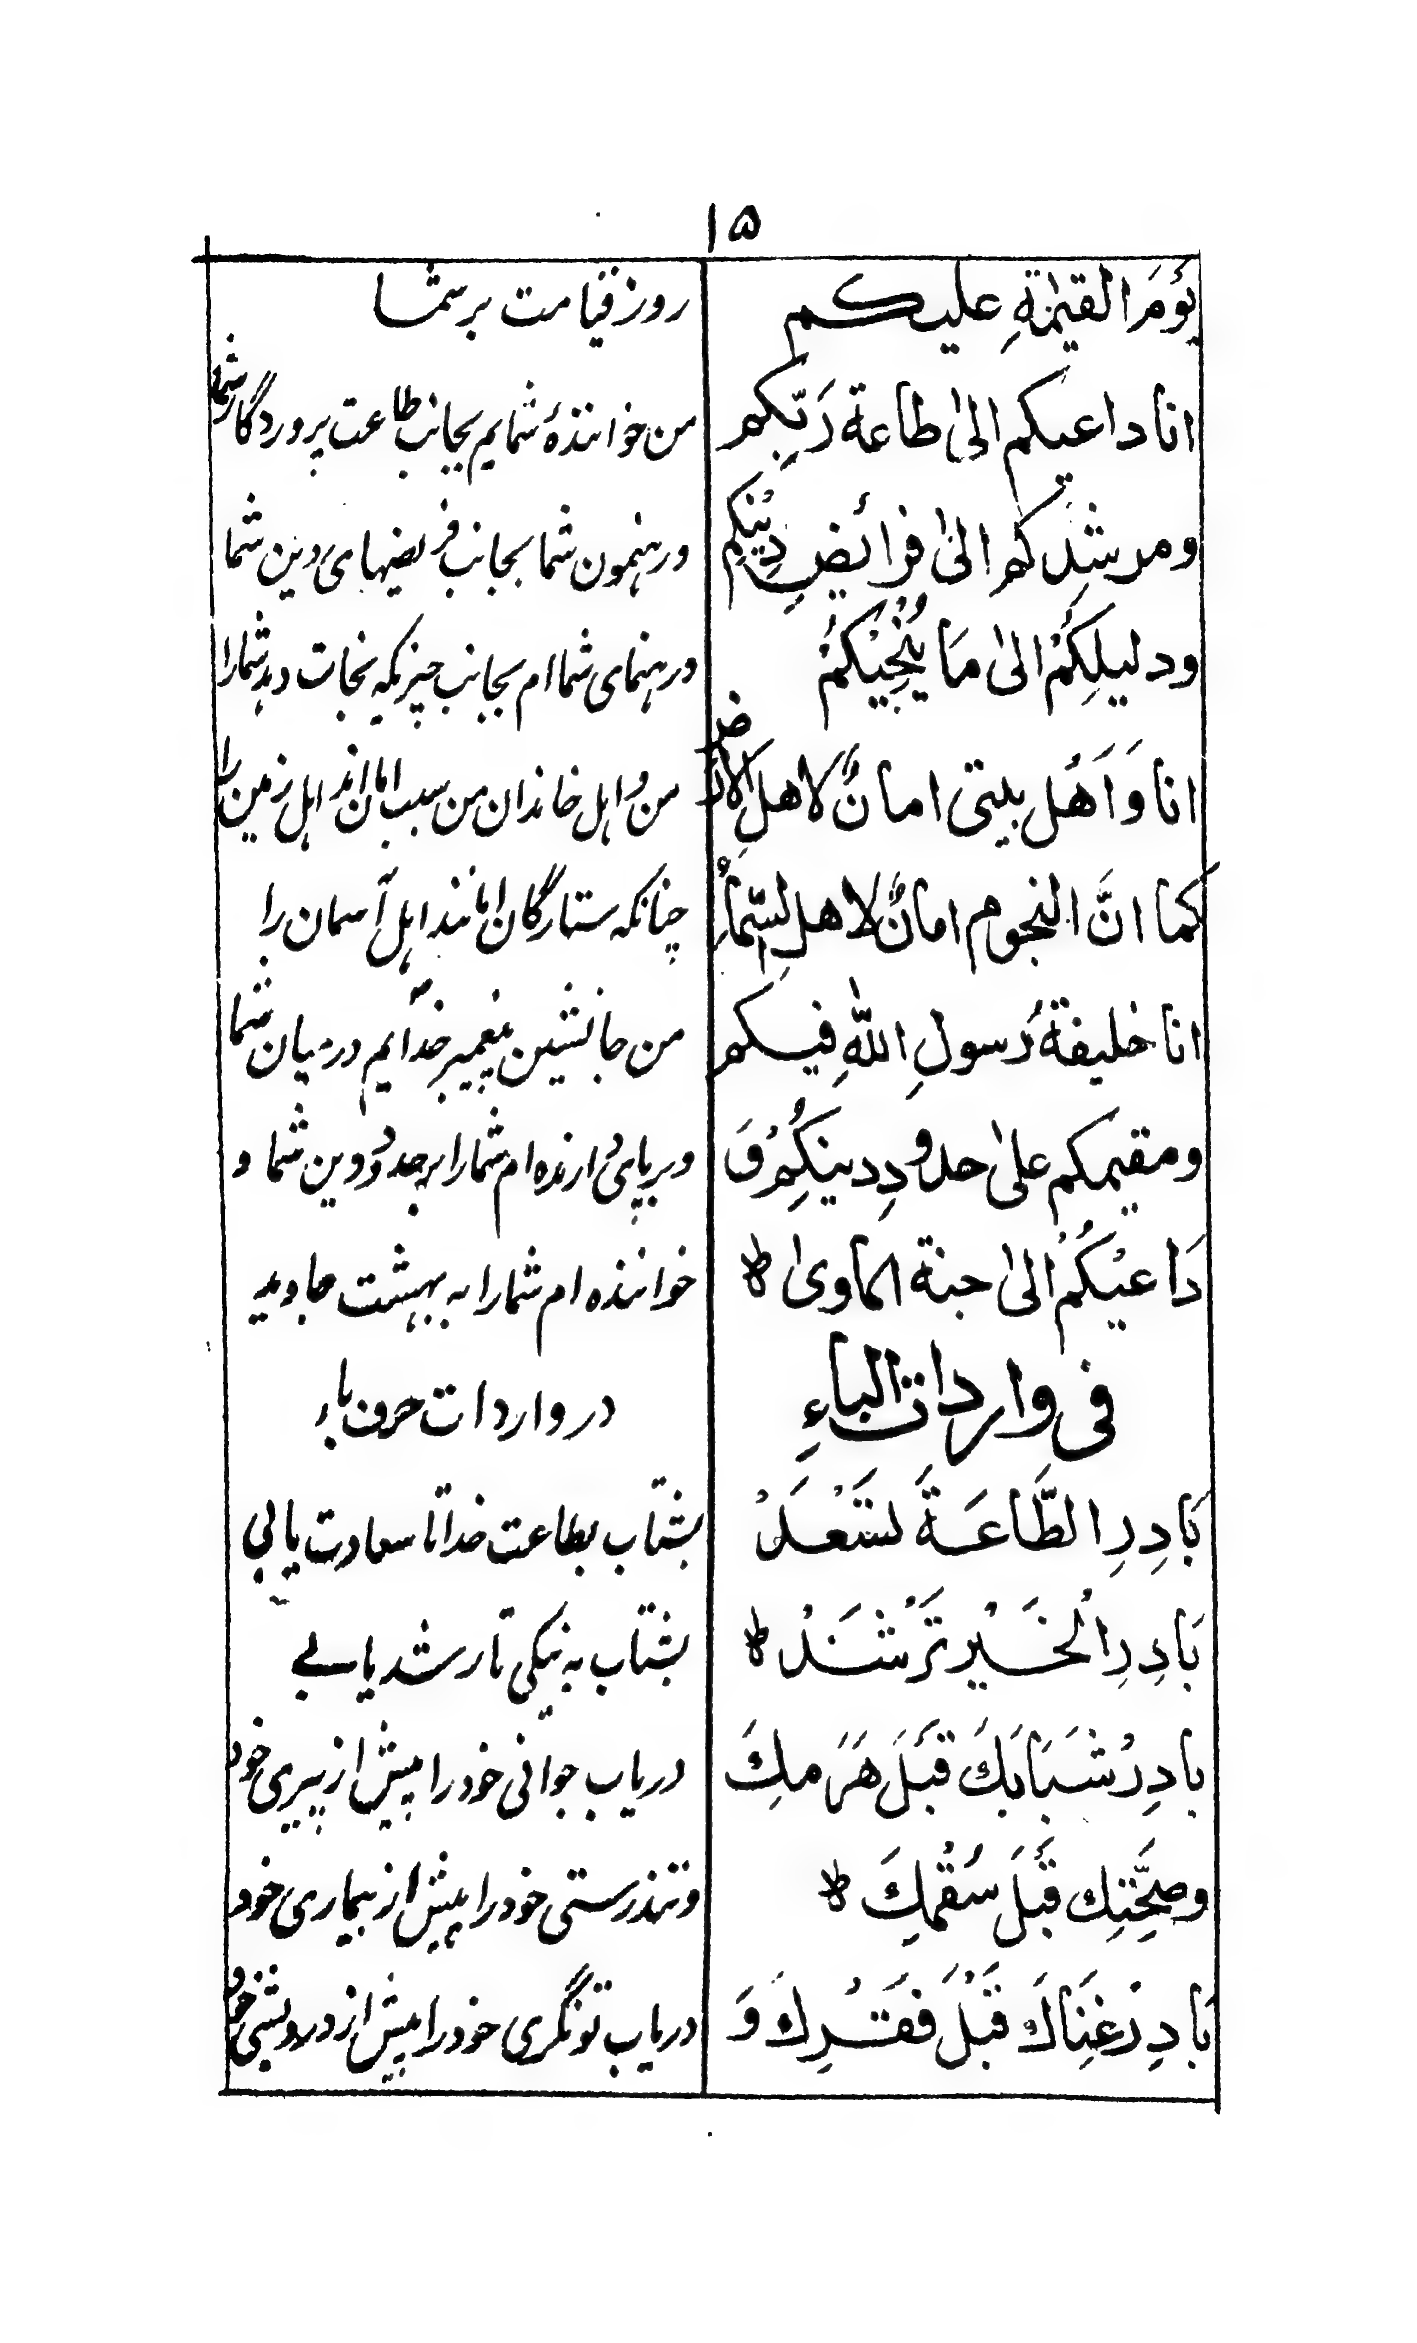 ۱۵
یَوْمَ القیٰمَةِ علیکم
روز قیامت بر شما
انا داعیکم الیٰ طاعة رَبِّکم
من خوانندۀ شمایم بجانب طاعت پروردگار شما
ومرشدکم الیٰ فرائضِ دِیْنِکم
ورهنمون شما بجانب فریضهای دین شما
ودلیلکُمْ الیٰ مَا یُنْجِیْکُمْ
ورهنمای شما ام بجانب چیزیکه نجات دهد شمارا
انا وَاَهْل بیتی امانٌ لاهلِ الارض
من و اهل خاندان من سبب امان اند اهل زمین را
کما انَّ النجوم امانٌ لاهلِ السّمآءِ
چنانکه ستارگان امانند اهل آسمان را
انا خلیفة رَسولِ اللّٰهِ فیکم
من جانشین پیغمبر خدایم در میان شما
ومقیمکم علیٰ حدودِ دینکُمْ وَ
وبرپای دارنده ام شمارا بر حدود دین شما و
دَاعیْکُمْ الیٰ جنة الماویٰ ط
خواننده ام شمارا به بهشت جاوید
فی واردات الباءِ
در واردات حرف باء
بَادِرِ الطَّاعَةَ تَسْعَدْ
بشتاب بطاعت خدا تا سعادت یابی
بَادِرِ الْخَیْرَ تَرْشَدْ ط
بشتاب به نیکی تا رشد یابے
بادِرْ شَبَابَكَ قَبْلَ هَرَمِكَ
دریاب جوانی خود را پیش از پیری خود
وصِحَّتِك قَبْلَ سُقْمِكَ ط
وتندرستی خود را پیش از بیماری خود
بَادِرْ غِنَاكَ قَبْلَ فَقْرِكَ وَ
دریاب تونگری خود را پیش از درویشی خود